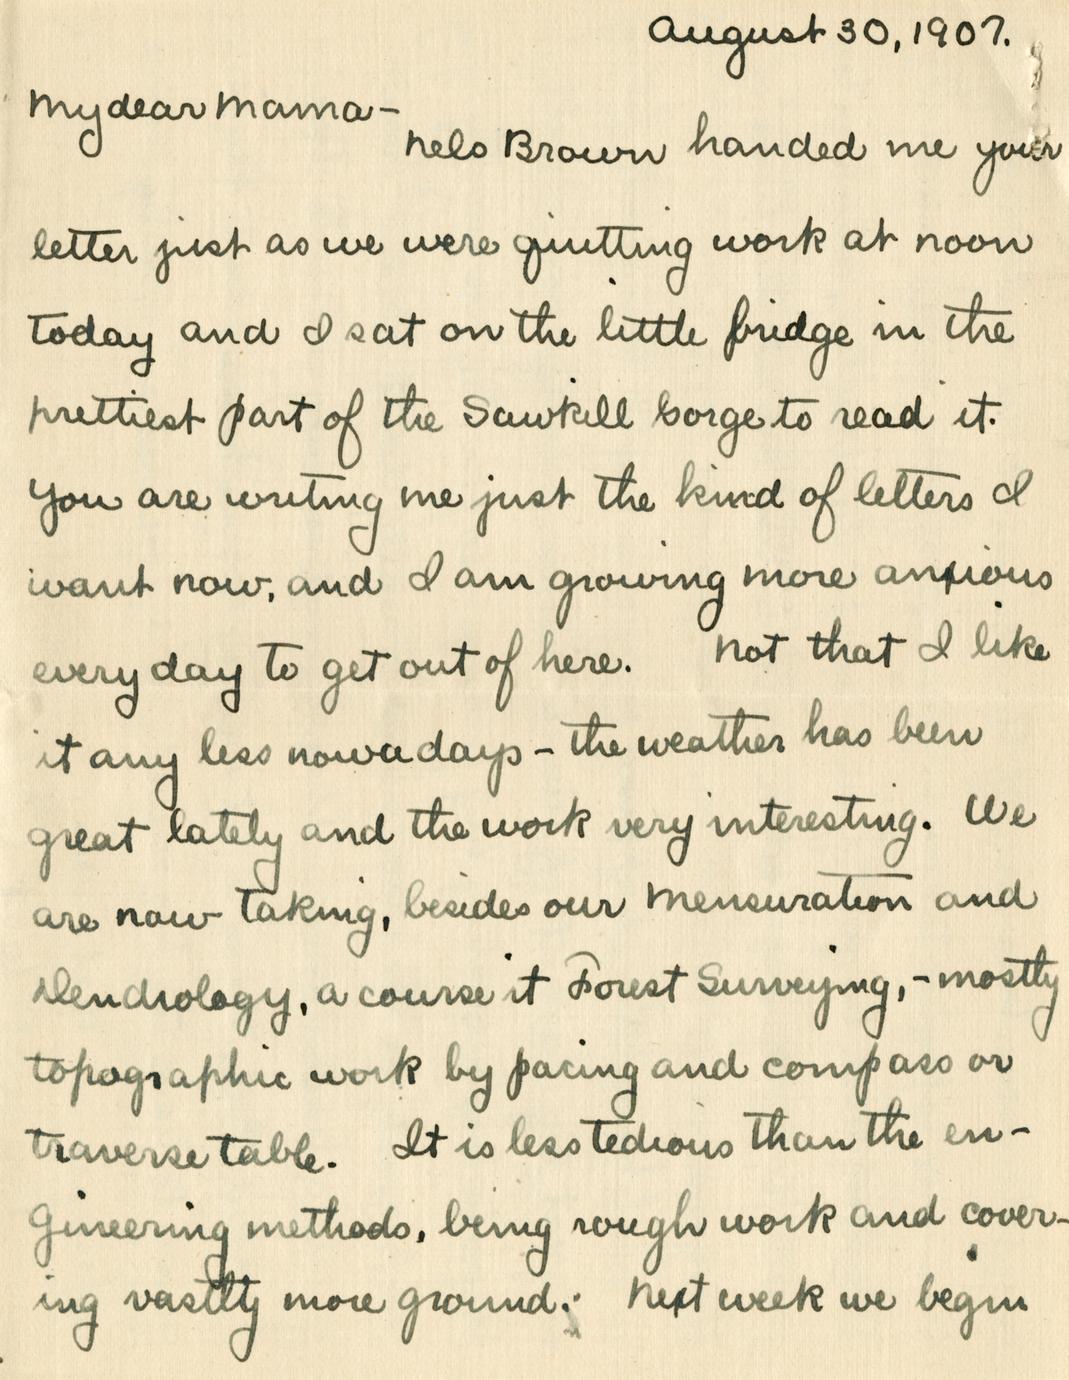 August 30, 1907.
My dear Mama –
Nels Brown handed me your
letter just as we were quitting work at noon
today and I sat on the little bridge in the
prettiest part of the Sawkill Gorge to read it.
You are writing me just the kind of letters I
want now, and I am growing more anxious
every day to get out of here. Not that I like
it any less nowadays – the weather has been
great lately and the work very interesting. We
are now taking, besides our Mensuration and
Dendrology, a course it Forest Surveying, – mostly
topographic work by pacing and compass or
traverse table. It is less tedious than the en-
gineering methods, being rough work and cover-
ing vastly more ground. Next week we begin